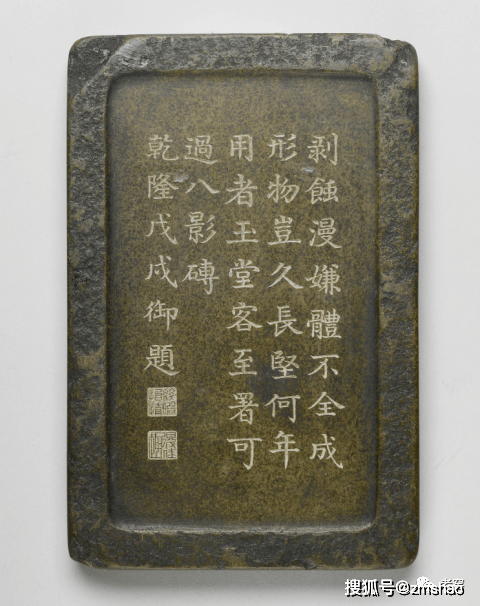 剥蝕漫嫌體不全成
形物豈久長堅何年
用者玉堂客至署可
過八影磚
乾隆戊戌御題
搜狐号@zmshao